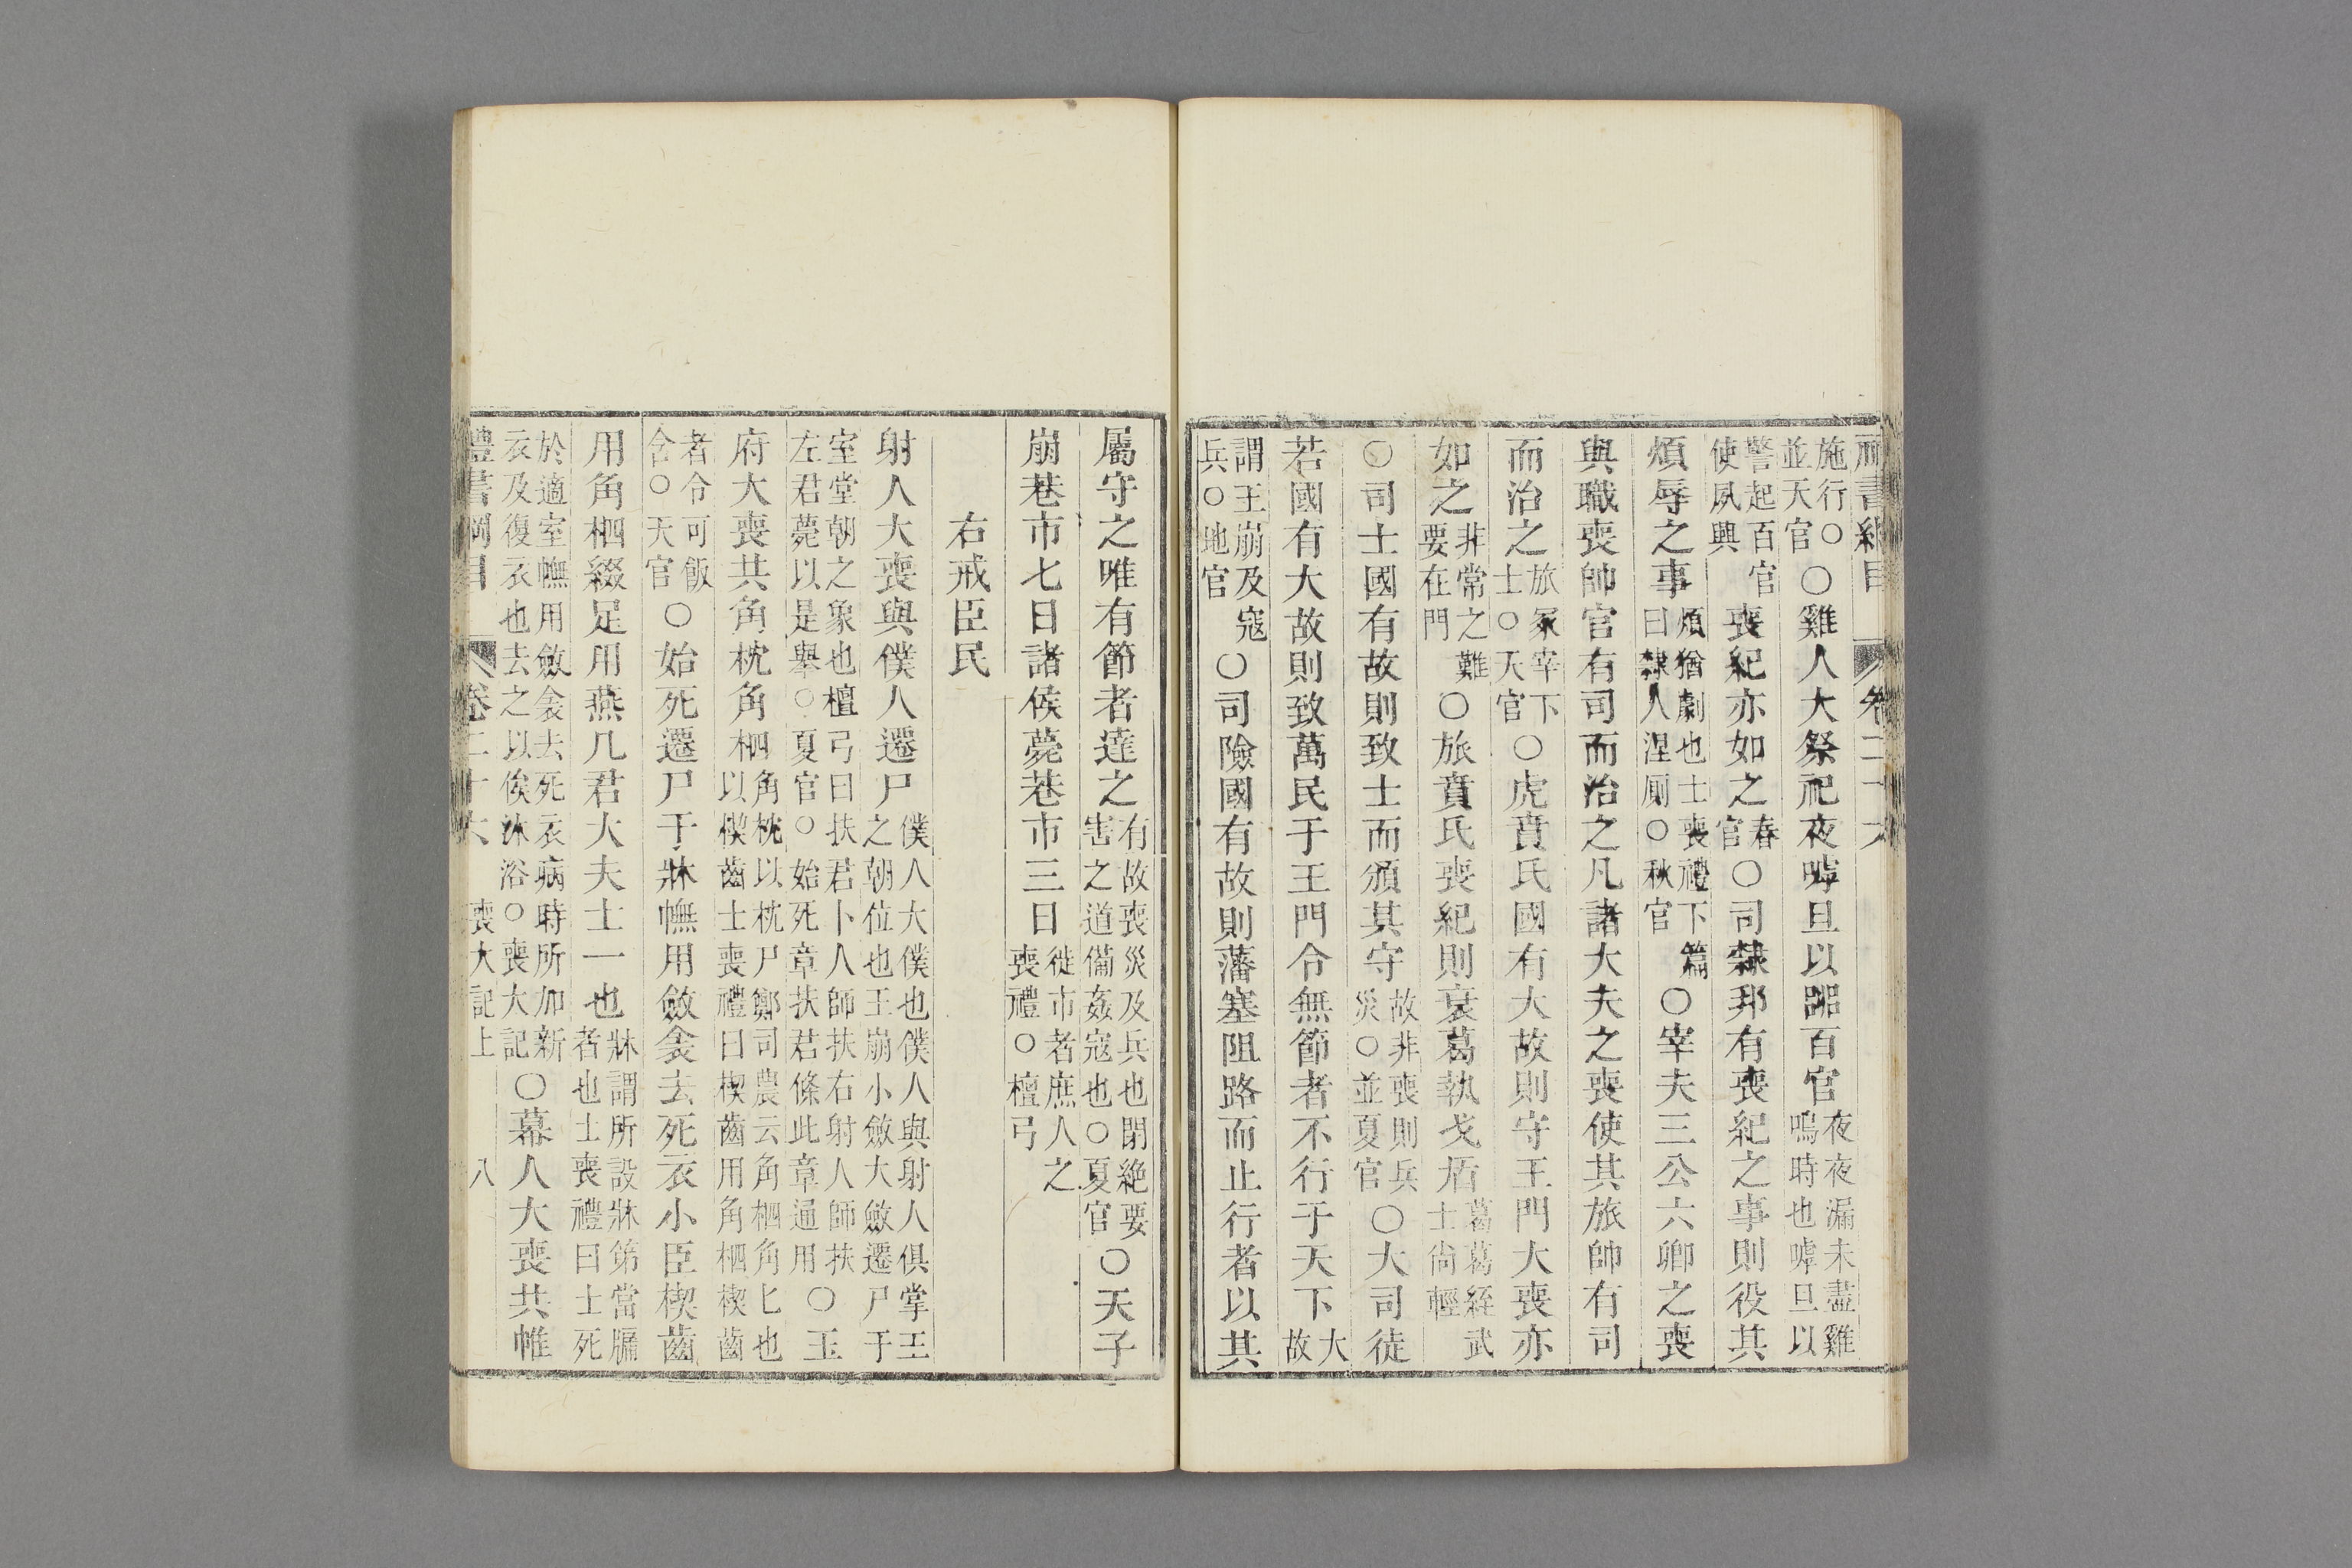 禮書綱目 卷二十六
施行○並天官○雞人大祭祀夜嘑旦以嘂百官夜夜漏未盡雞鳴時也嘑旦以
警起百官使夙興喪紀亦如之春官○司隸邦有喪紀之事則役其
煩辱之事煩猶劇也士喪禮下篇曰隸人涅廁○秋官○宰夫三公六卿之喪
與職喪帥官有司而治之凡諸大夫之喪使其旅帥有司
而治之旅冢宰下士○天官○虎賁氏國有大故則守王門大喪亦
如之非常之難要在門○旅賁氏喪紀則衰葛執戈盾葛葛絰武士尚輕
○司士國有故則致士而頒其守故非喪則兵災○並夏官○大司徒
若國有大故則致萬民于王門令無節者不行于天下大故
謂王崩及寇兵○地官○司險國有故則藩塞阻路而止行者以其
屬守之唯有節者達之有故喪災及兵也閉絕要害之道備姦寇也○夏官○天子
崩巷市七日諸侯薨巷市三日徙市者庶人之喪禮○檀弓
右戒臣民
射人大喪與僕人遷尸僕人大僕也僕人與射人俱掌王之朝位也王崩小斂大斂遷尸于
室堂朝之象也檀弓曰扶君卜人師扶右射人師扶左君薨以是舉○夏官○始死章扶君條此章通用○玉
府大喪共角枕角柶角枕以枕尸鄭司農云角柶角匕也以楔齒士喪禮曰楔齒用角柶楔齒
者令可飯含○天官○始死遷尸于牀幠用斂衾去死衣小臣楔齒
用角柶綴足用燕几君大夫士一也牀謂所設牀第當牖者也士喪禮曰士死
於適室幠用斂衾去死衣病時所加新衣及復衣也去之以俟沐浴○喪大記○幕人大喪共帷
禮書綱目 卷二十六 喪大記上 八